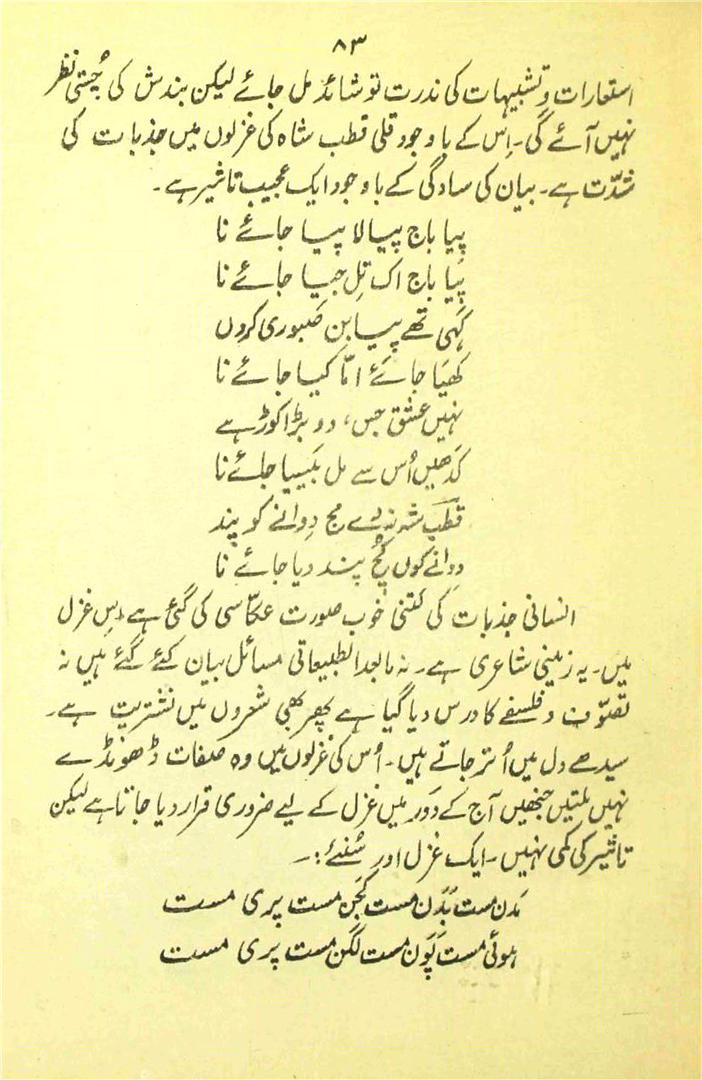 ۸۳
استعارات و تشبیہات کی ندرت تو شائد مل جائے لیکن بندش کی چُستی نظر
نہیں آئے گی۔ اِس کے باوجود قلی قطب شاہ کی غزلوں میں جذبات کی
شدّت ہے۔ بیان کی سادگی کے باوجود ایک عجیب تاثیر ہے۔
پیا باج پیالا پیا جائے نا
پیا باج اک تِل جیا جائے نا
کہی تھے پیا بن صَبوری کروں
کھیَا جائے امّا کیا جائے نا
نہیں عشق جس، دو بڑا کوڑ ہے
کدَھیں اُس سے مل بَیسیا جائے نا
قطَب شہ نہ دے مج دِوانے کو پند
دِوانے کوں کُچ پند دیا جائے نا
انسانی جذبات کی کتنی خوب صورت عکّاسی کی گئی ہے اِس غزل
میں۔ یہ زمینی شاعری ہے۔ نہ مابعد الطبیعاتی مسائل بیان کئے گئے ہیں نہ
تصوّف و فلسفے کا درس دیا گیا ہے پھر بھی شعروں میں نشتریت ہے۔
سیدھے دل میں اُتر جاتے ہیں۔ اُس کی غزلوں میں وہ صفات ڈھونڈے
نہیں ملتیں جنھیں آج کے دَور میں غزل کے لیے ضروری قرار دیا جاتا ہے لیکن
تاثیر کی کمی نہیں۔ ایک غزل اور سُنئے:۔
مَدن مست بَدَن مست کَجَن مست پری مست
ہوئی مست پَوَن مست لگن مست پری مست